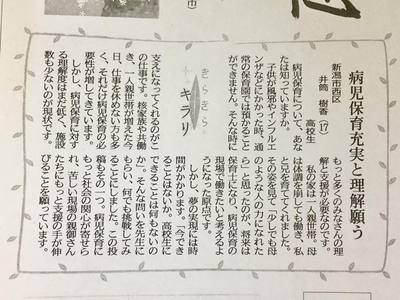 市)
病児保育充実と理解願う
新潟市西区
井筒 樹香 高校生
(17)
病児保育について、あな
たは知っていますか。
子供が風邪やインフルエ
ンザなどにかかった時、通
常の保育園では預かること
ができません。そんな時に
きらきら
キラリ
支えになってくれるのがこ
の仕事です。核家族や共働
き、一人親世帯が増えた今
日、仕事を休めない方も多
く、それだけ病児保育の必
要性が増してきています。
しかし、病児保育に対す
る理解度はまだ低く、施設
数も少ないのが現状です。
もっと多くのみなさんの理
解と支援が必要なのです。
私の家は一人親世帯。母
は体調を崩しても働き、私
と兄を育ててくれました。
その姿を見て「少しでも母
のような人の力になれた
ら」と思ったのが、将来は
保育士になり、病児保育の
現場で働きたいと考えるよ
うになった原点です。
しかし、夢の実現には時
間がかかります。「今でき
ることはないか。高校生に
できることは何もないの
か」。そんな問いを先生に
もらい、何でも挑戦してみ
ることにしました。この投
稿もその一つ。病児保育に
もっと社会の関心が寄せら
れ、苦しい現場の親御さん
たちにもっと支援の手が伸
びることを願っています。